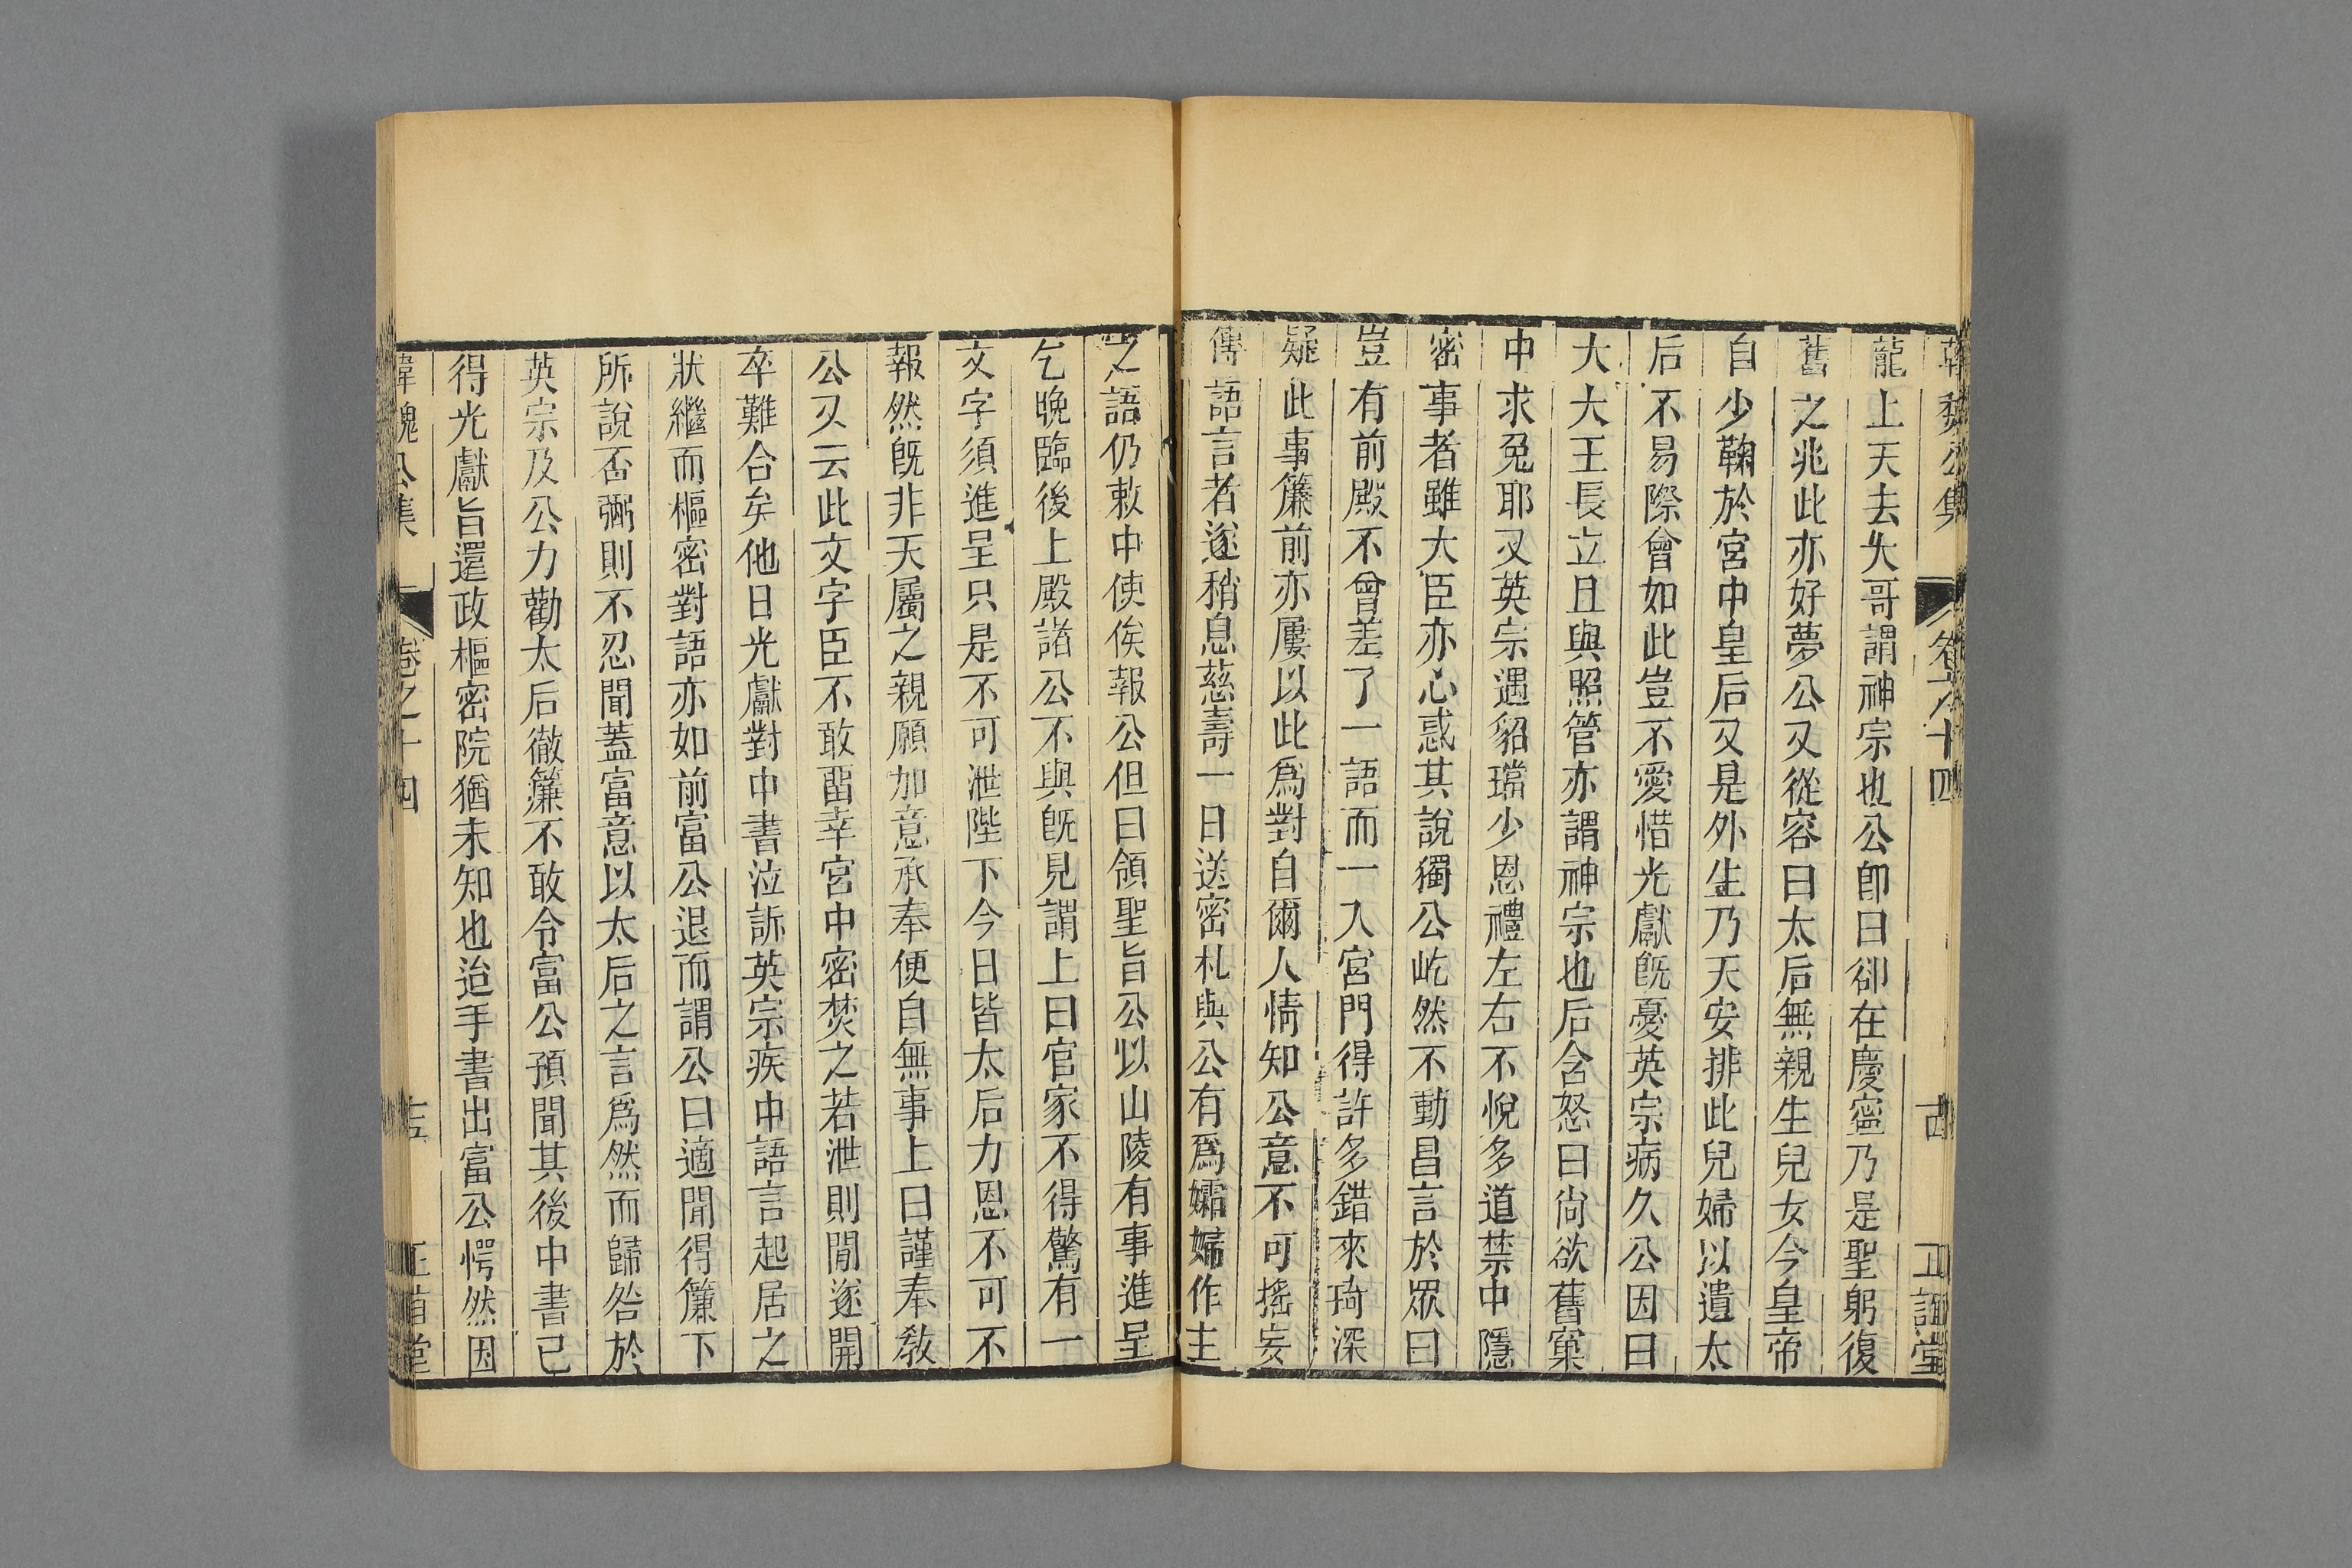 韓魏公集 卷之十四 古 正誼堂
龍上天去大哥謂神宗也公卽曰卻在慶寧乃是聖躬復
舊之兆此亦好夢公又從容曰太后無親生兒女今皇帝
自少鞠於宮中皇后又是外生乃天安排此兒婦以遺太
后不易際會如此豈不愛惜光獻旣憂英宗病久公因曰
大大王長立且與照管亦謂神宗也后含怒曰尙欲舊窠
中求兔耶又英宗遇貂璫少恩禮左右不悅多道禁中隱
密事者雖大臣亦心惑其說獨公屹然不動昌言於眾曰
豈有前殿不曾差了一語而一入宮門得許多錯來琦深
疑此事簾前亦屢以此爲對自爾人情知公意不可搖妄
傳語言者遂稍息慈壽一日送密札與公有爲孀婦作主
之語仍敕中使俟報公但曰領聖旨公以山陵有事進呈
乞晚臨後上殿諸公不與旣見謂上曰官家不得驚有一
文字須進呈只是不可泄陛下今日皆太后力恩不可不
報然旣非天屬之親願加意承奉便自無事上曰謹奉敎
公又云此文字臣不敢畱幸宮中密焚之若泄則間遂開
卒難合矣他日光獻對中書泣訴英宗疾中語言起居之
狀繼而樞密對語亦如前富公退而謂公曰適聞得簾下
所說否弼則不忍聞蓋富意以太后之言爲然而歸咎於
英宗及公力勸太后徹簾不敢令富公預聞其後中書已
得光獻旨還政樞密院猶未知也迨手書出富公愕然因
韓魏公集 卷之十四 十五 正誼堂